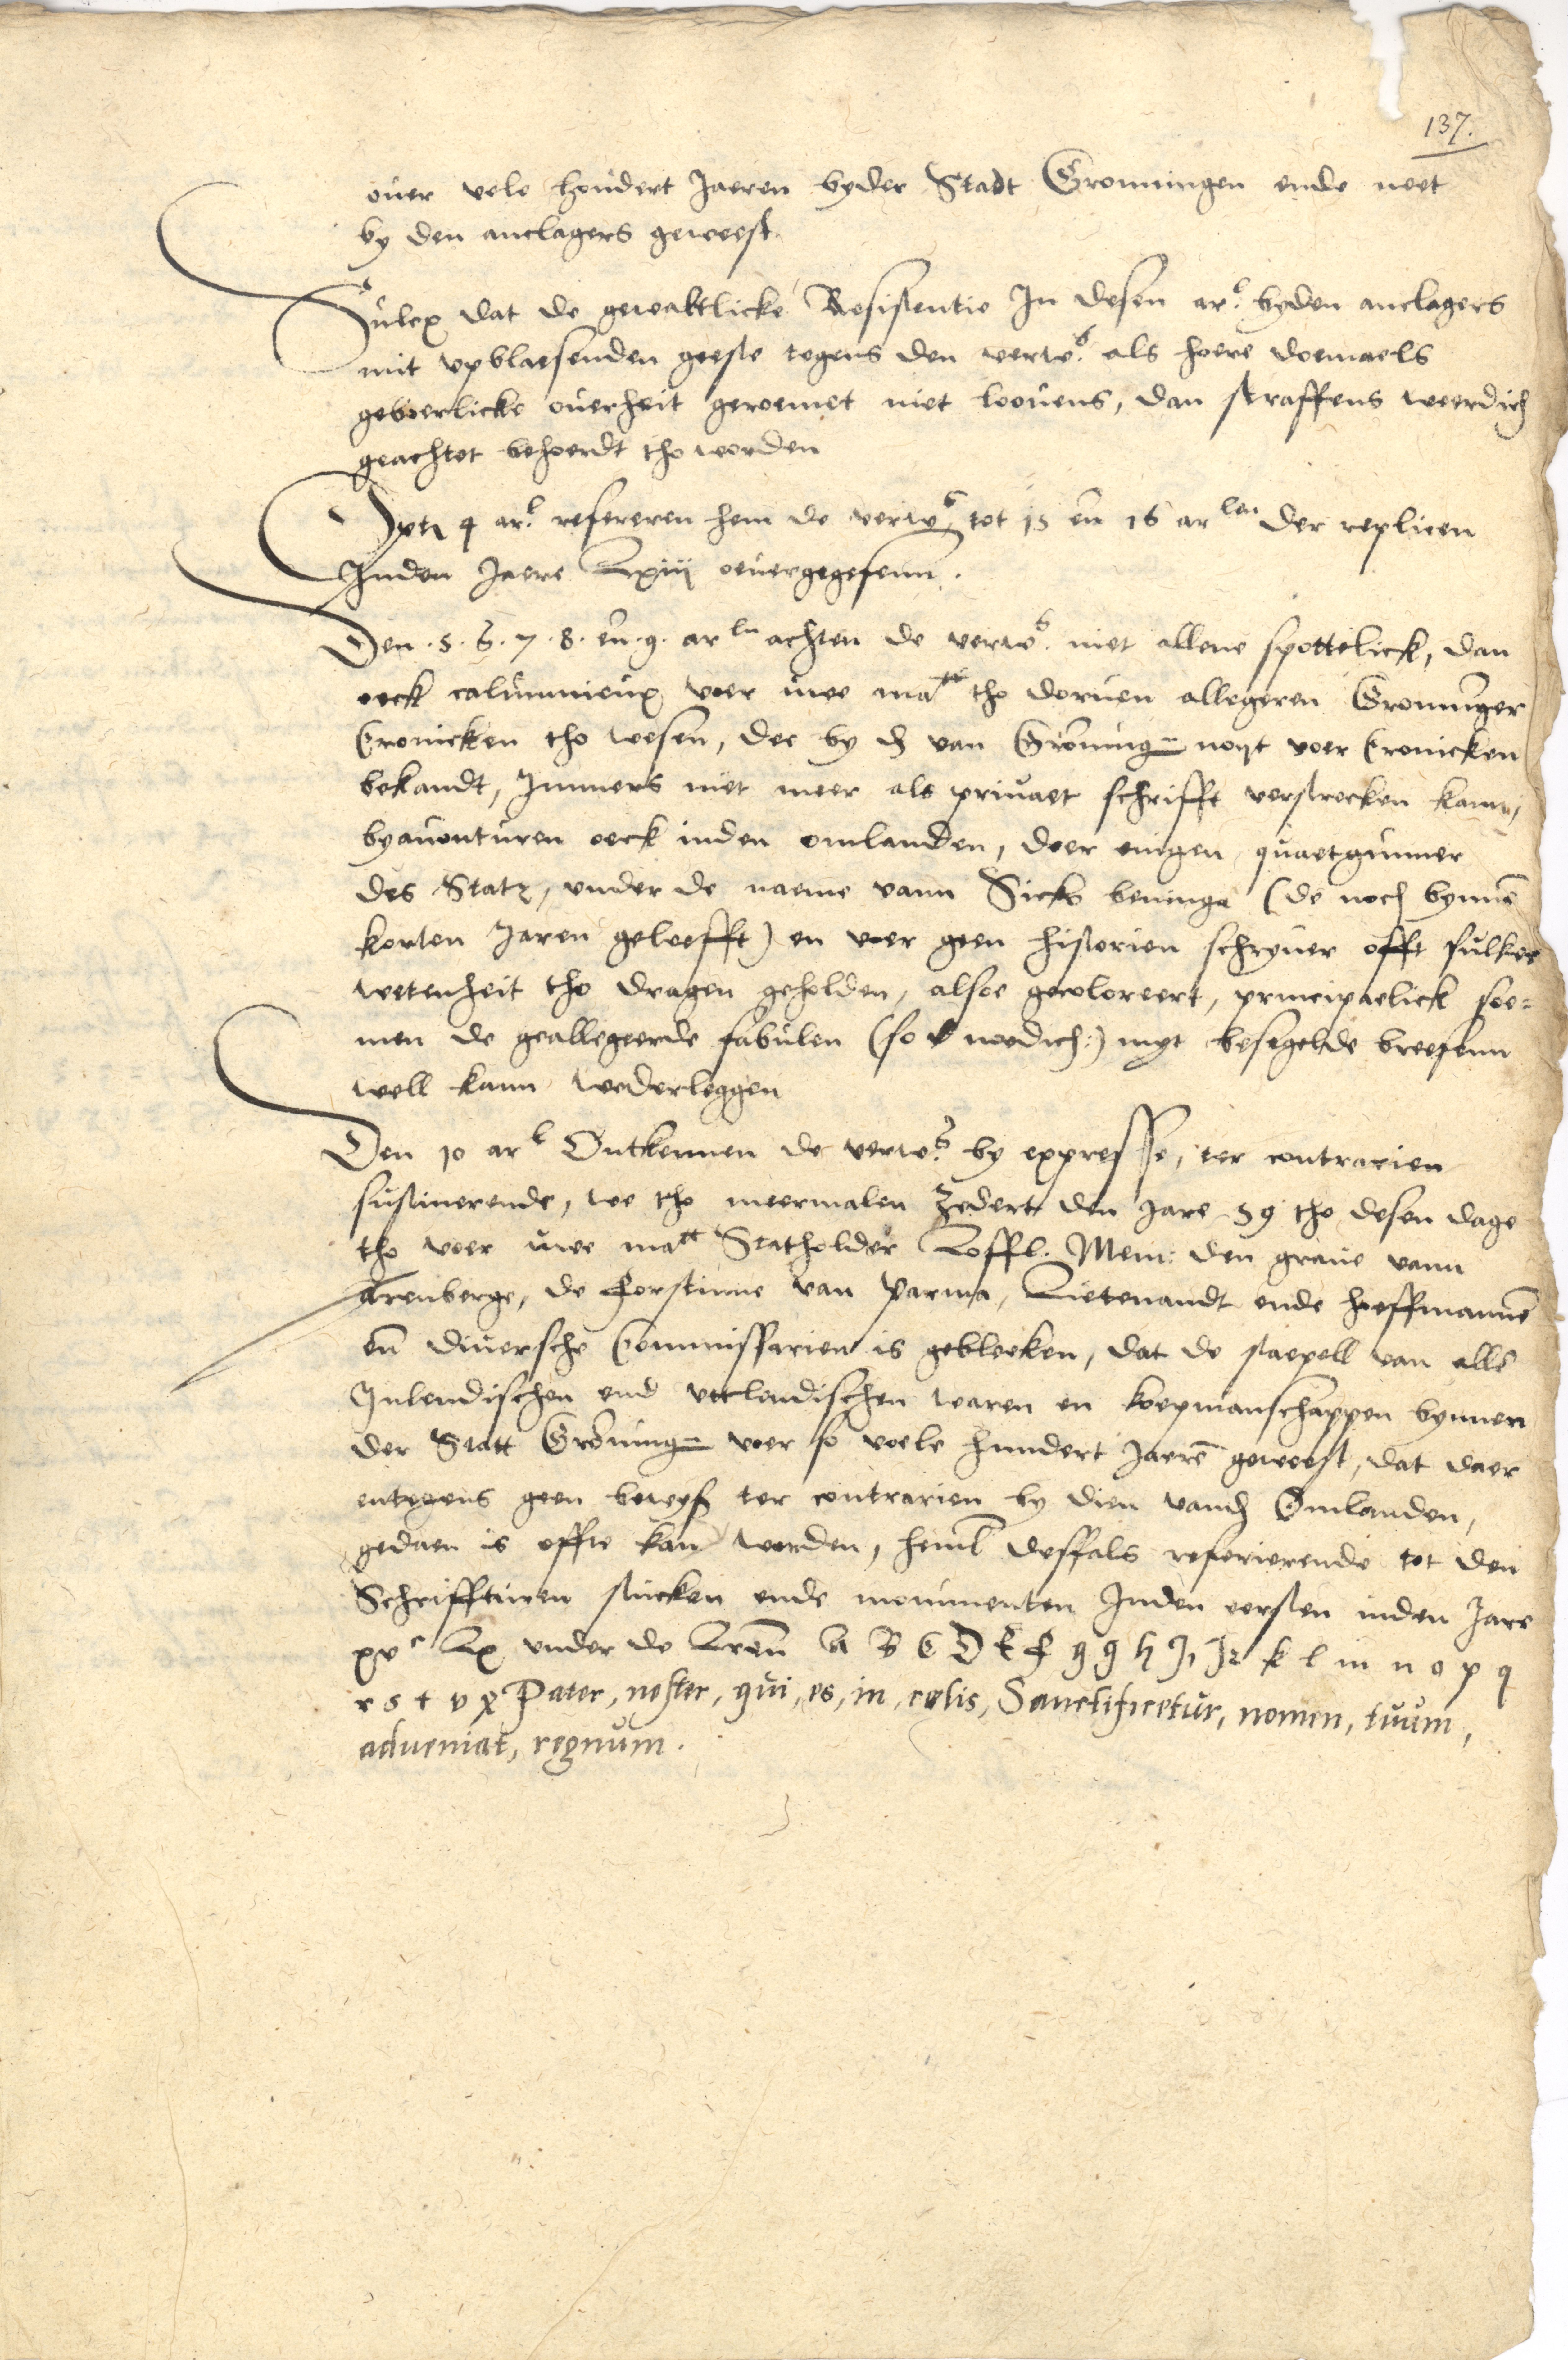 137.
ouer vele hondert Jaeren byder Stadt Gronningen ende neet
by den anclagers geweest.
Sulex dat de gewaltlicke Resistentie In desen ar.l byden anclagers
mit upblaesenden geeste tegens den verw.s als hoere doemaels
geboerlicke ouerheit geroemet niet loouens, dan straffens weerdich
geachtet behoerdt tho worden
4 ar.l refereren hem de verw.s tot 15 en 16 ar len der replicen
Inden Jaere Lxiij oeuergegefenn.
Den .5.6.7.8. en .9. ar ln achten de verw.s niet allene spottelick, dan
oeck calumnieux voer uwe matt tho doruen allegeren Groninger
Cronicken tho wesen, dee by d van Groning= noyt voer Cronicken
bekandt, Immers niet meer als priuaet schrifft verstrecken kann,
byauonturen oeck inden omlanden, doer enigen quaetgunner
des Statz, under de naeme vann Sicko beninga (de noch bynnen
korten Jaren geleefft) en voer geen historien schryuer offt sulker
wetenheit tho dragen geholden, alsoe gecoloreert, principaelick soe=
men de geallegeerde fabulen (so noedich:) myt besegelde breefenn
woll kann wederleggen
Den 10 ar l Ontkennen de verw.s by expresse, ter contrarien
sustinerende, we tho meermalen zedert den Jare 59 tho desen dage
tho voer uwe matt Statholder Loffl. Mem: den graue vann
Arenberge, de Forstinne van Parma, Lietenandt ende hoeffmannen
en diuersche Commissarien is gebleeken, dat de stapell van allen
Inlendischen end utlendischen waren en koepmanschappen bynnen
der Statt Groning= voer so voele hundert Jaeren geweest, dat daer
entegens geen bewys ter contrarien by dien vand Omlanden,
gedaen is offte kan werden, heml desfals refererende tot den
Schriffturen stucken ende monumenten Inden eersten inden Jare
xvc Lx under de Lren A B C D E F g g h J k l m n o p q
r s t v x Pater, noster, qui, es, in, celis, Sanctificetur, nomen, tuum,
adueniat, regnum.